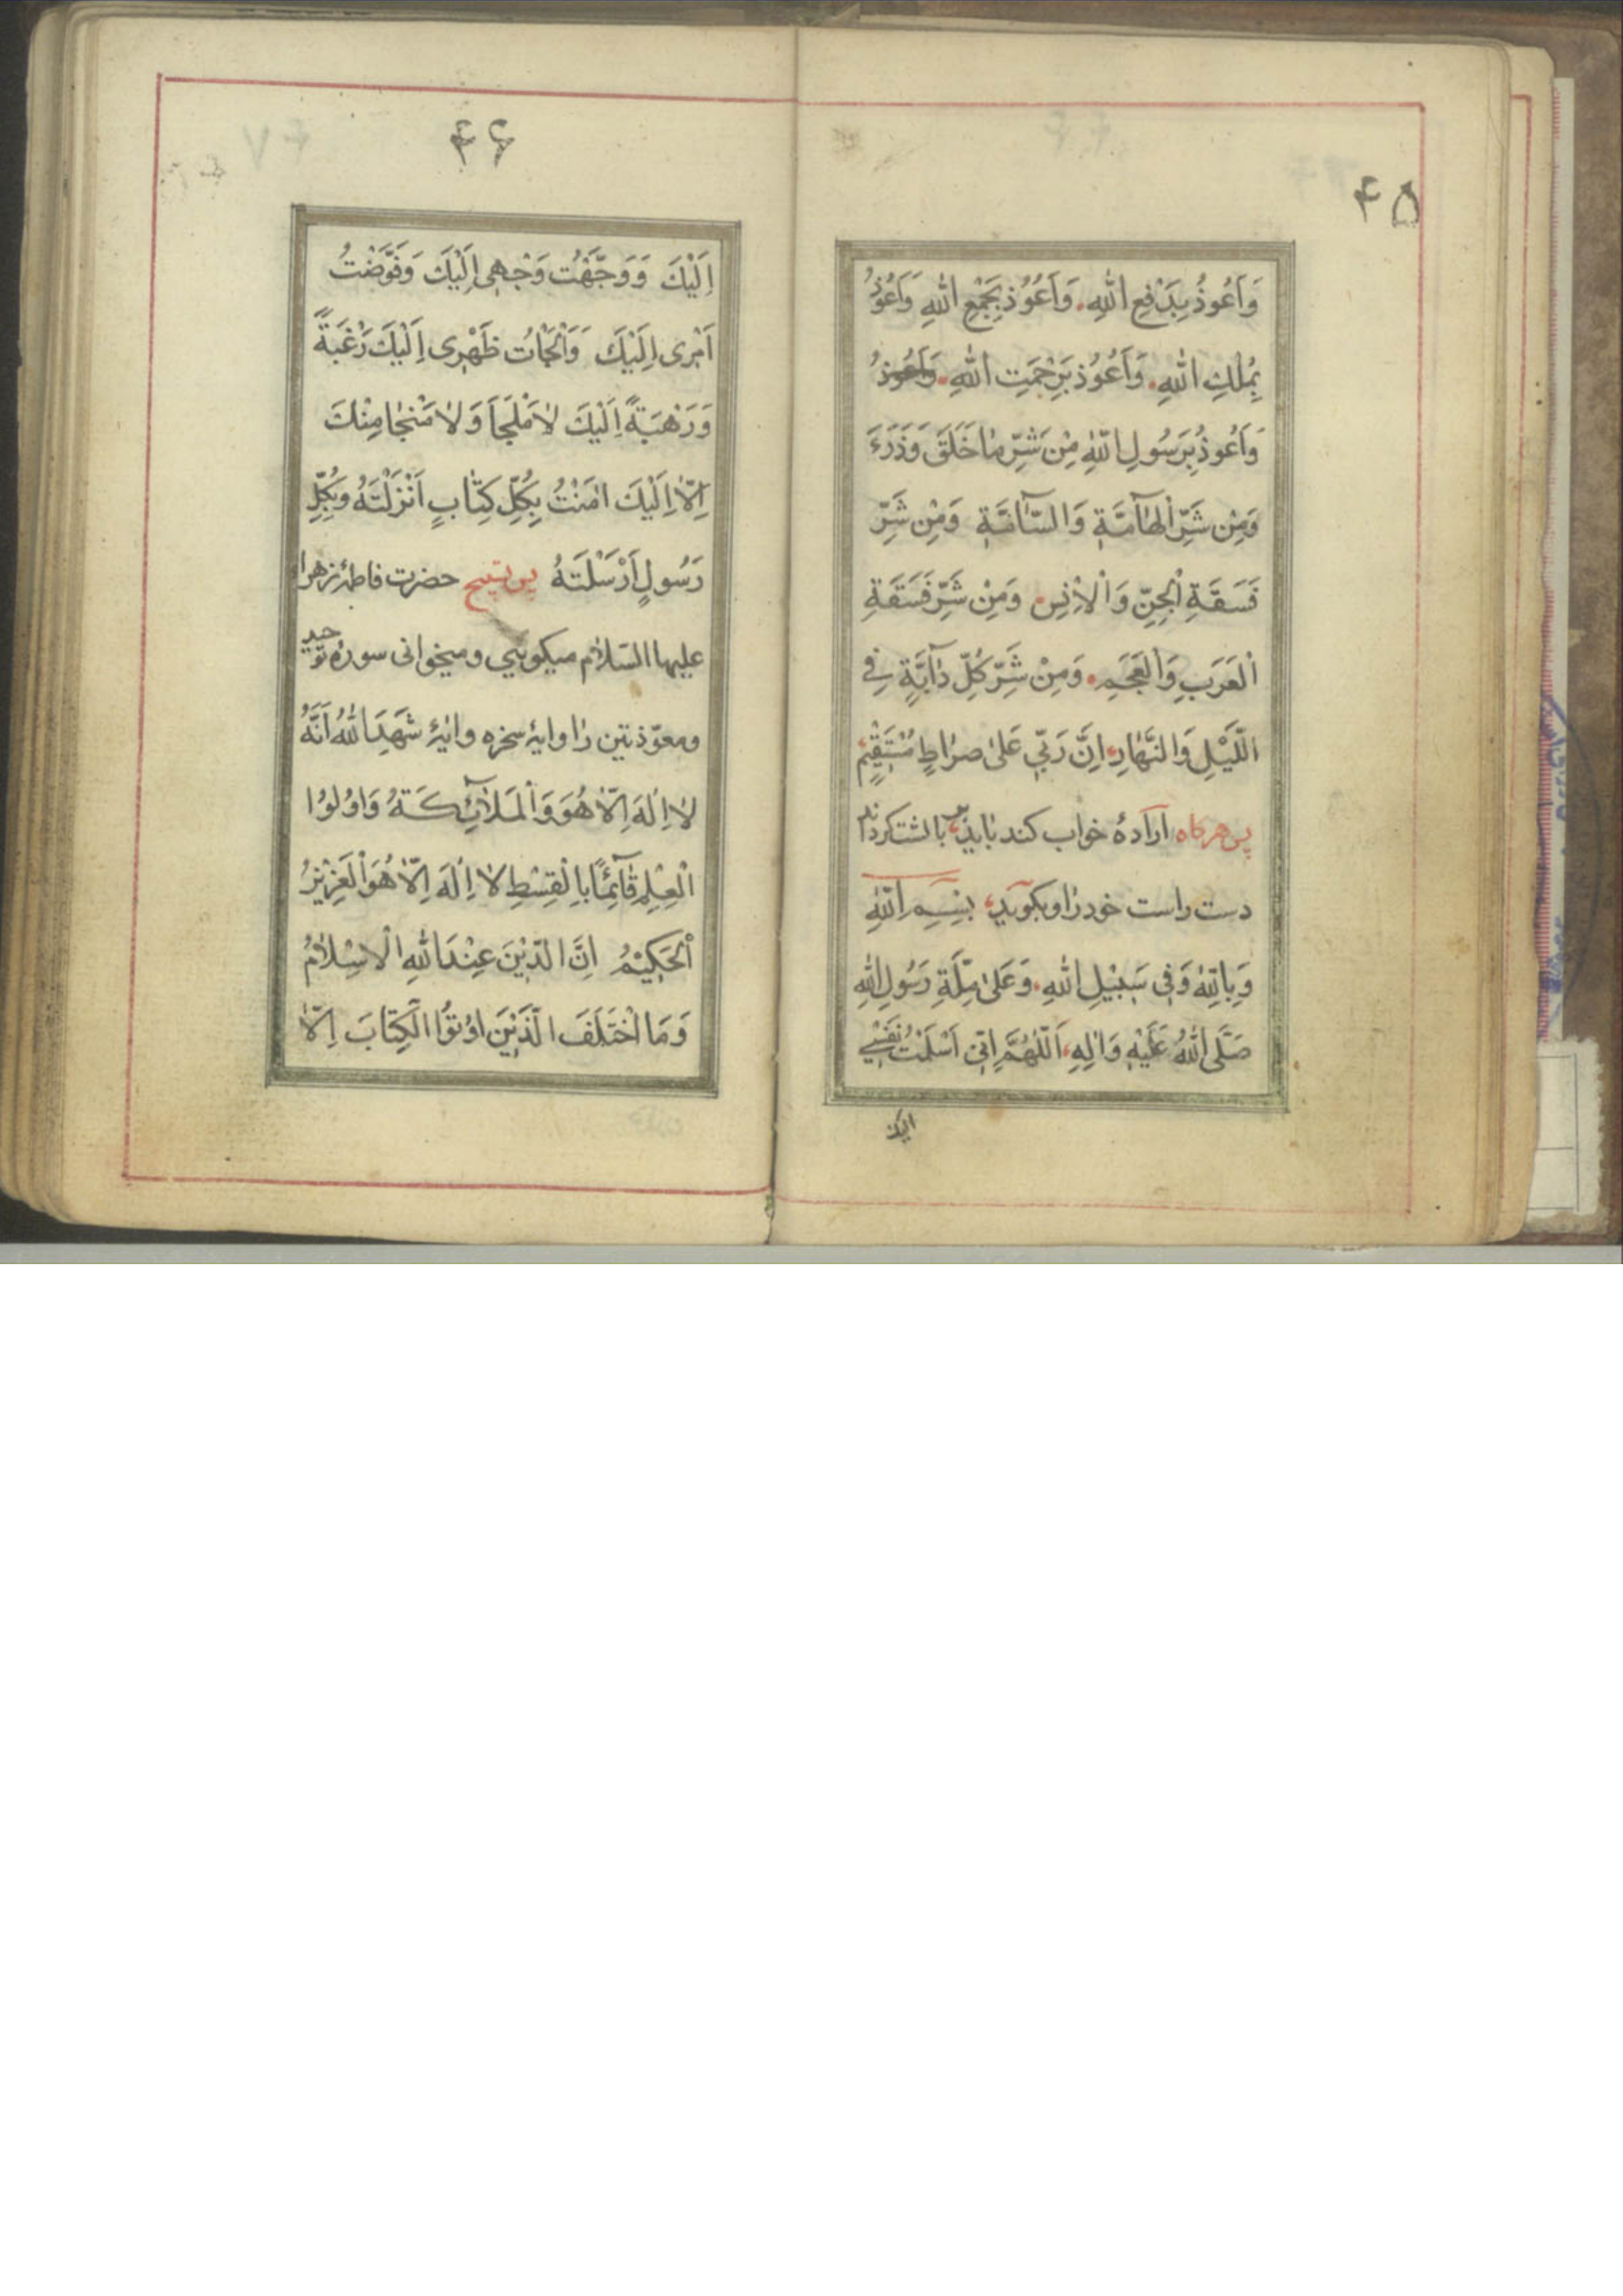 ۴۵
وَاَعُوذُ بِدَفْعِ اللهِ. وَاَعُوُذ بِجَمْعِ اللهِ وَاَعُوُذُ
بِمُلْكِ اللهِ. وَاَعُوُذ بِرَحْمَتِ اللهِ. وَاَعُوذُ
وَاَعُوذُ بِرَسُولِ اللّهِ مِنْ شَرِّ مٰا خَلَقَ وَذَرَءَ
وَمِنْ شَرِّ الْهٰآمَّةِ وَالسّٰآمَّةِ وَمِنْ شَرِّ
فَسَقَةِ الْجِنِّ وَالْاِنْسِ. وَمِنْ شَرِّ فَسَقَةِ
الْعَرَبِ وَالْعَجَمِ. وَمِنْ شَرِّ كُلِّ دٰآبَّةٍ فِى
اللَّيْلِ وَالنَّهٰارِ، اِنَّ رَبّى عَلىٰ صرٰاطٍ مُسْتَقٖيمٍ
پس هرکاه اراده خواب کند بايد بر بالشت کرداند
دست راست خود را و بکويد، بِسْمِ اللّهِ
وَبِاللّهِ وَفى سَبٖيلِ اللهِ. وَعَلىٰ مِلَّةِ رَسُولِ اللهِ
صَلَّى اللهُ عَلَيْهِ وَاٰلِهِ، اَللّٰهُمَّ اِنّى اَسْلَمْتُ نَفْسٖى
اليك
۴۶
اِلَيْكَ وَوَجَّهْتُ وَجْهٖى اِلَيْكَ وَفَوَّضْتُ
اَمْرى اِلَيْكَ وَاَلْجَاْتُ ظَهْرى اِلَيْكَ رَغْبَةً
وَرَهْبَةً اِلَيْكَ لاٰ مَلْجَاَ وَلاٰ مَنْجٰا مِنْكَ
اِلّاٰ اِلَيْكَ اٰمَنْتُ بِكُلِّ كِتٰابٍ اَنْزَلْتَهُ وَبِكُلِّ
رَسُولٍ اَرْسَلْتَهُ پس تسبيح حضرت فاطمهٔ زهرا
عليها السّلاٰم ميکويی و ميخوانی سورهٔ توحيد
و معوّذتين را و ايهٔ سخره و ايهٔ شَهِدَ اللهُ اَنَّهُ
لاٰ اِلٰهَ اِلّاٰ هُوَ وَالْمَلاٰۤئِكَةُ وَاوُلوُا
الْعِلْمِ قٰآئِمًا بِالْقِسْطِ لاٰ اِلٰهَ اِلّاٰ هُوَ الْعَزٖيزُ
الْحَكٖيمُ اِنَّ الدّٖينَ عِنْدَ اللهِ الْاِسْلاٰمُ
وَمَا اخْتَلَفَ الَّذٖينَ اوُتوُا الْكِتٰابَ اِلّاٰ